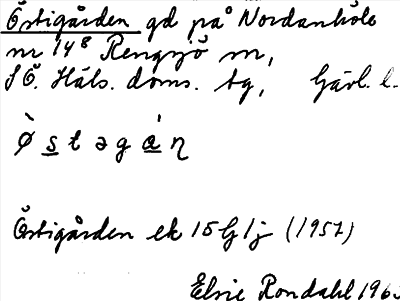 Östigården gd på Nordanhöle
nr 14⁸ Rengsjö sn,
S Ö. Häls. doms. tg, Gävl. l.
Ø̀ s̲ t ə g a̲̍ ɳ
Östigården ek 15G1j (1957)
Elsie Rondahl 196